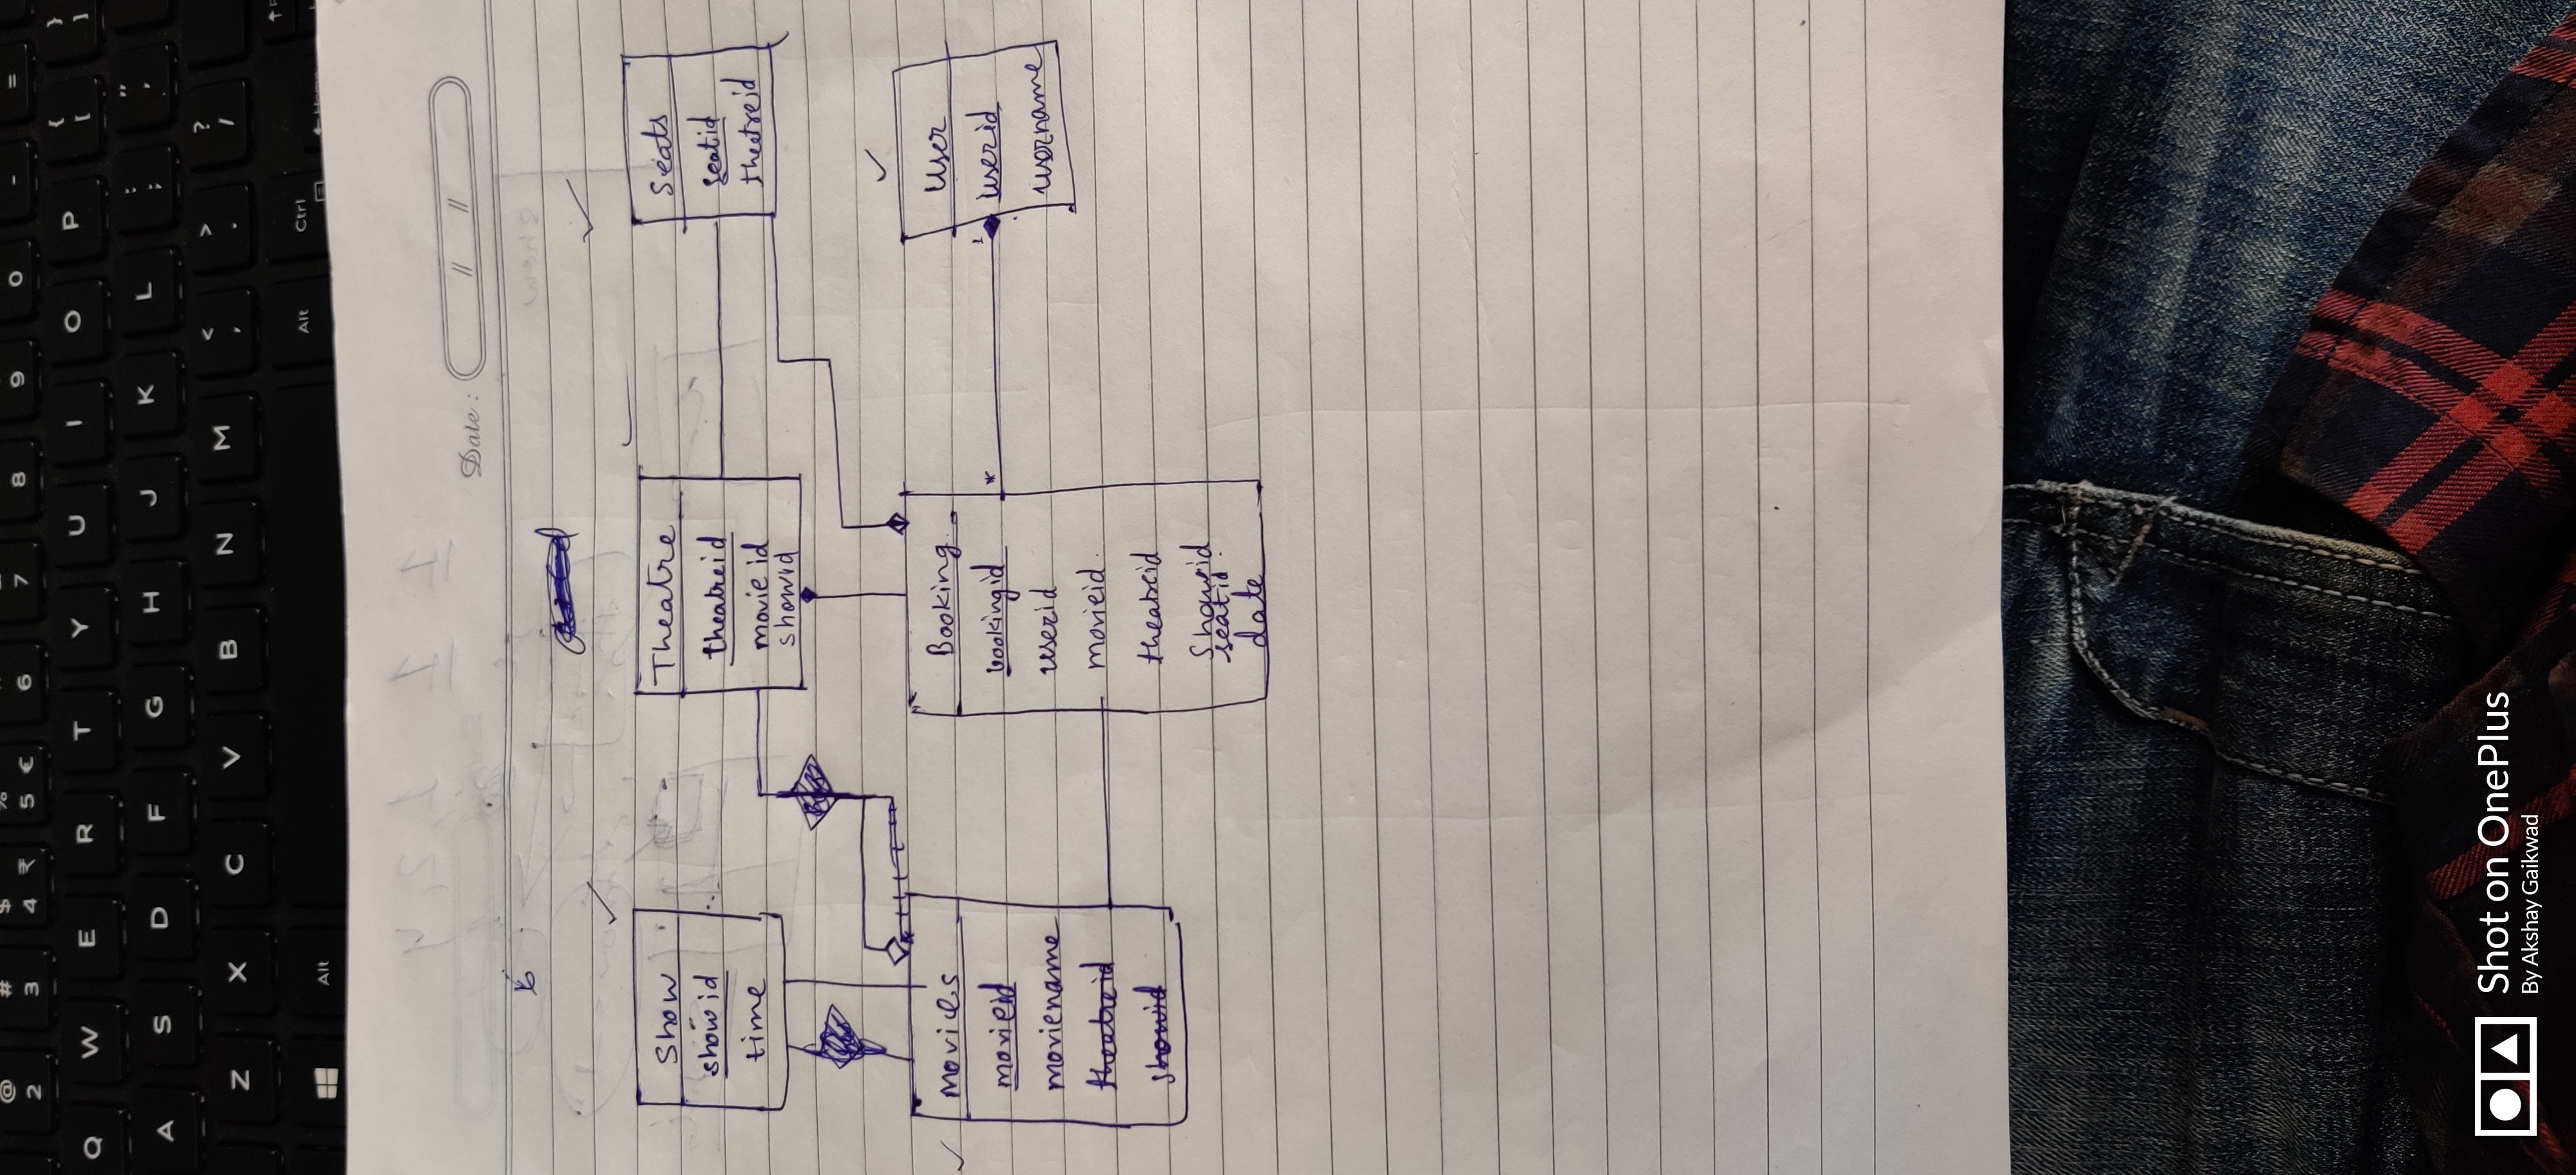 @ # $ ₹ % € 
2 3 4 5 6 7 8 9 0 - =
Q W E R T Y U I O P { [ } ]
A S D F G H J K L : ; " '
Z X C V B N M < , > . ? /
Alt Alt Ctrl
Date : // //
Show
showid
time
Theatre
theatreid
movie id
showid
Seats
seatid
theatreid
Movies
movieid
moviename
theatreid
showid
Booking
bookingid
userid
movieid
theatreid
Showid
seatid
date
*
1
User
userid
username
Shot on OnePlus
By Akshay Gaikwad